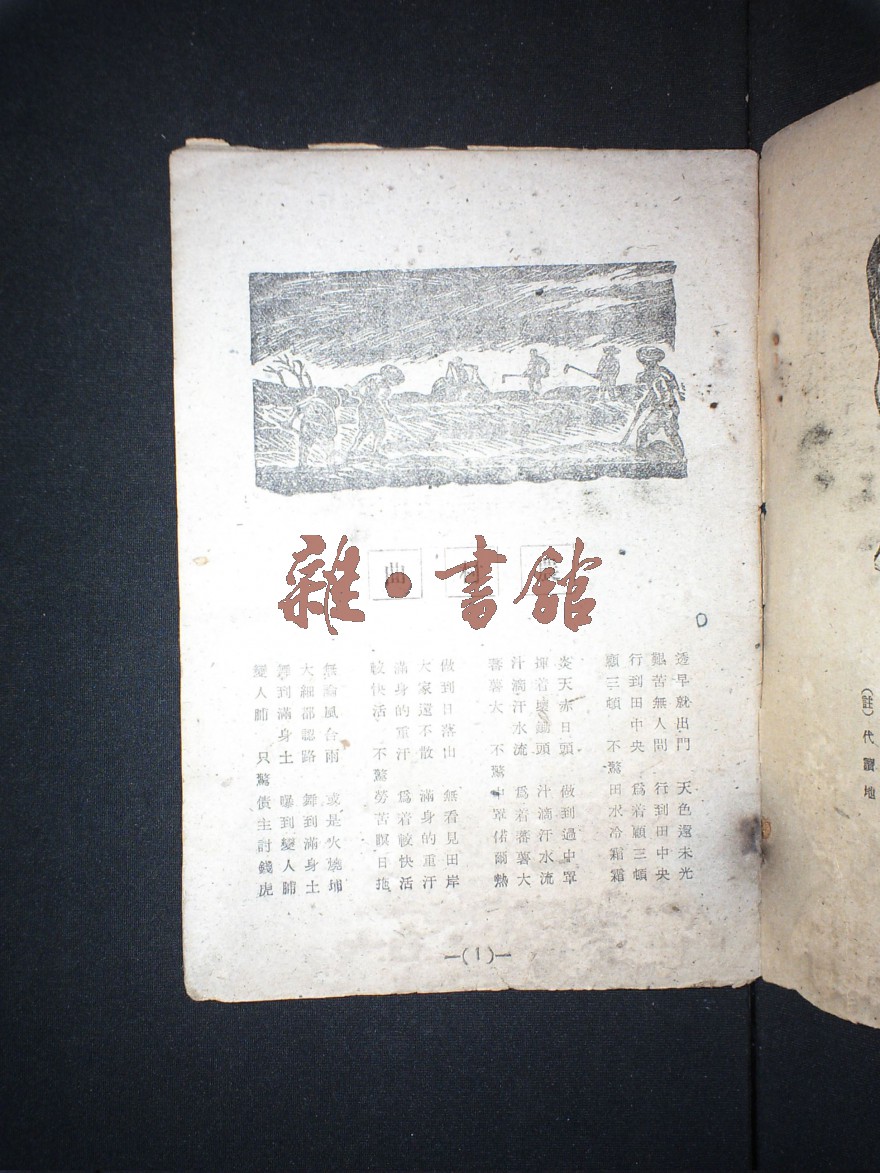 雜·書館
農村曲
透早就出門　天色還未光
艱苦無人問　行到田中央
行到田中央　爲着顧三頓
顧三頓　不驚田水冷霜霜
炎天赤日頭　做到過中罩
揮着鋤頭　汁滴汗水流
汁滴汗水流　爲着蕃薯大
蕃薯大　不驚中罩偌爾熱
做到日落出　無看見田岸
大家還不散　滿身的重汗
滿身的重汗　爲着較快活
較快活　不驚勞苦瞑日拖
無論風台雨　或是火燒埔
大細都認路　舞到滿身土
舞到滿身土　曝到變人脯
變人脯　只驚債主討錢虎
—(1)—
(註)代讀地